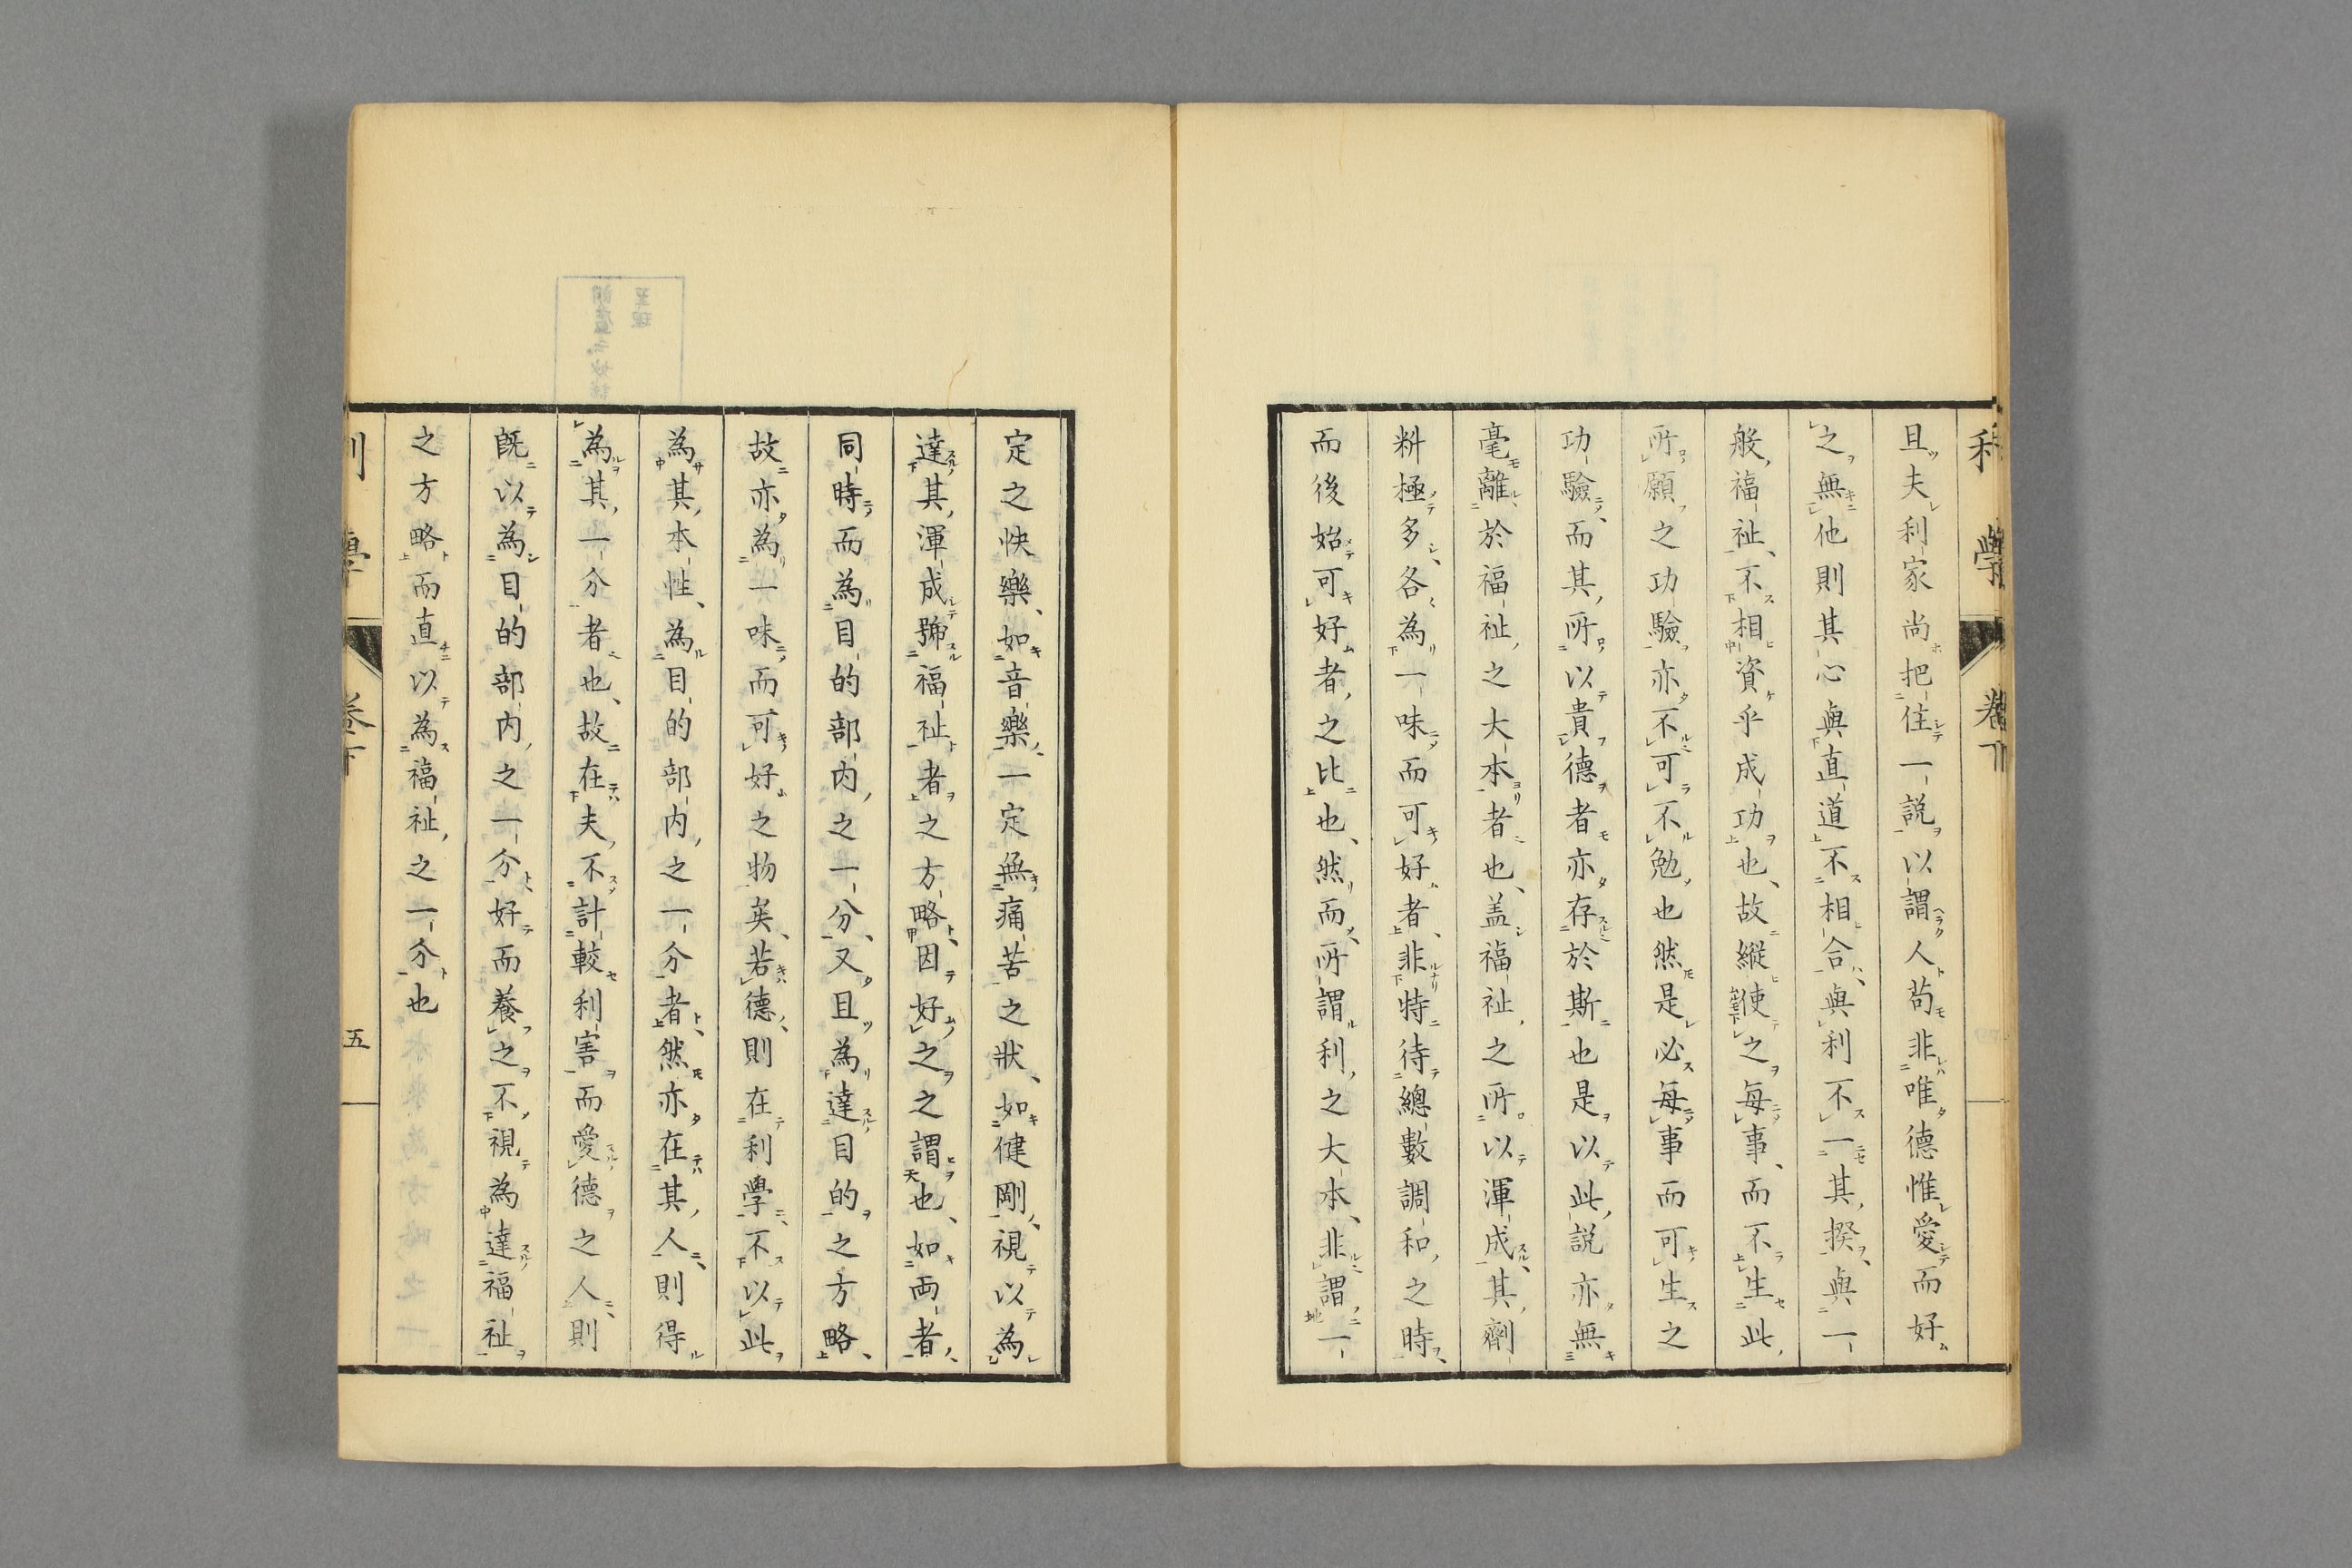 且夫利家尚把住一説以謂人苟非唯德惟愛而好
之無他則其心與直道不相合與利不一其揆與一
般福祉不相資乎成功也故縱使之每事而不生此
所願之功驗亦不可不勉也然是必每事而可生之
功驗而其所以貴德者亦存於斯也是以此説亦無
毫離於福祉之大本者也盖福祉之所以渾成其劑
料極多各為一味而可好者非特待總數調和之時
而後始可好者之比也然而所謂利之大本非謂一
定之快樂如音樂一定無痛苦之狀如健剛視以為
達其渾成號福祉者之方略因好之之謂也如両者
同時而為目的部内之一分又且為達目的之方略
故亦為一味而可好之物矣若德則在利學不以此
為其本性為目的部内之一分者然亦在其人則得
為其一分者也故在夫不計較利害而愛德之人則
既以為目的部内之一分好而養之不視為達福祉
之方略而直以為福祉之一分也
五